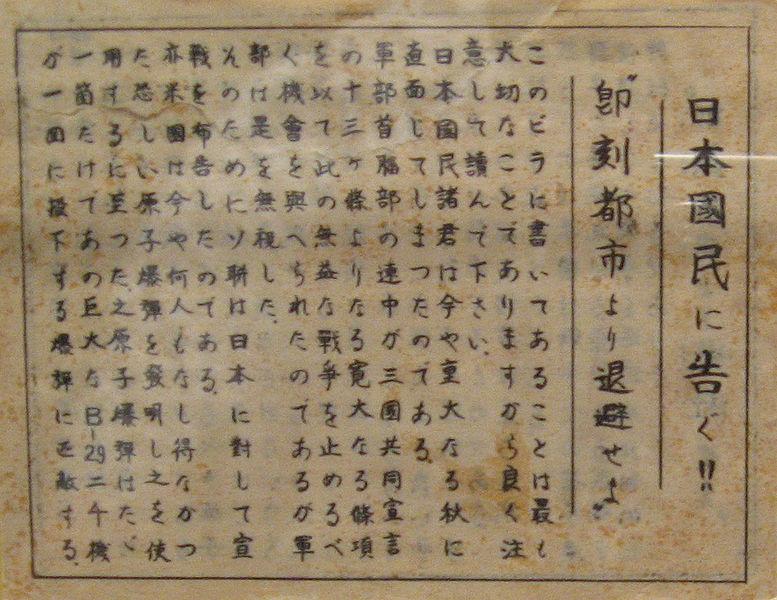 日本國民に告ぐ!!
"即刻都市より退避せよ"
このビラに書いてあることは最も
大切なことでありますから良く注
意して讀んで下さい。
日本國民諸君は今や重大なる秋に
直面してしまつたのである。
軍部首脳部の連中が三國共同宣言
の十三ケ條よりなる寛大なる條項
を以て此の無益な戰爭を止めるべ
く機會を與へられたのであるが軍
部は是を無視した。
そのためにソ聯は日本に對して宣
戰を布告したのである。
亦米國は今や何人もなし得なかつ
た恐しい原子爆彈を發明し之を使
用するに至つた。之原子爆彈はたゞ
一箇だけであの巨大なB-29二千機
が一回に投下する爆彈に匹敵する。